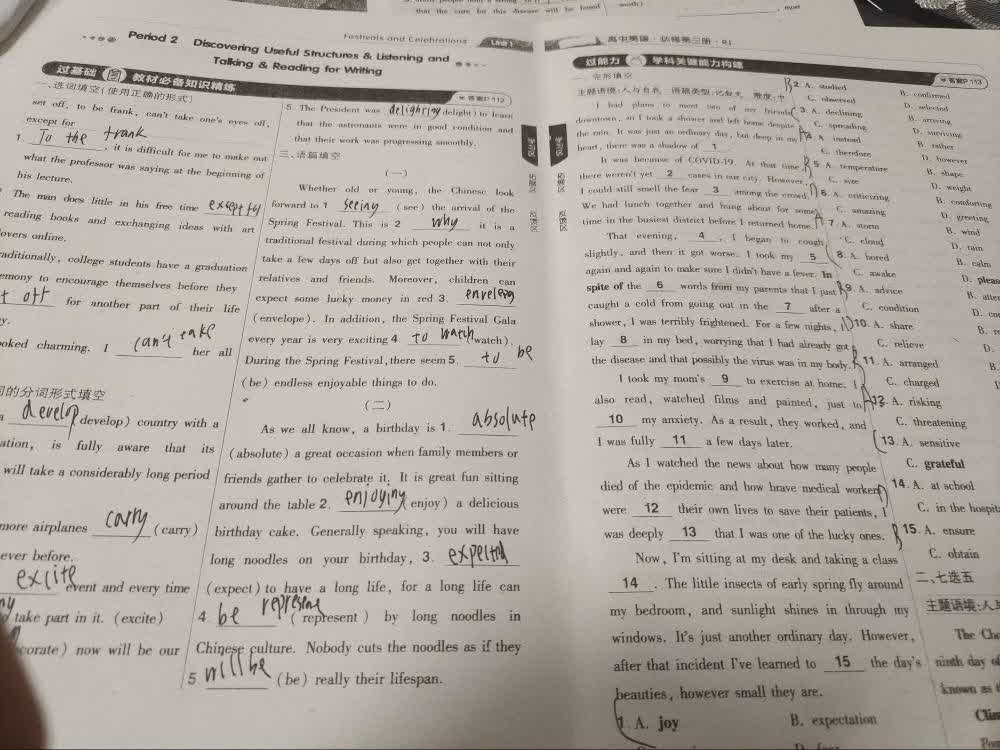 that the care for this disease will be found
Festivals and Celebrations Unit 1
Period 2 Discovering Useful Structures & Listening and
Talking & Reading for Writing
过基础 教材必备知识精练 答案P 113
一、选词填空(使用正确的形式)
set off, to be frank, can't take one's eyes off,
except for
1. To the frank, it is difficult for me to make out
what the professor was saying at the beginning of
his lecture.
The man does little in his free time
reading books and exchanging ideas with art
overs online.
aditionally, college students have a graduation
emony to encourage themselves before they
t off for another part of their life
y.
oked charming. I can't take her all
的分词形式填空
a develop (develop) country with a
ation, is fully aware that its
will take a considerably long period
more airplanes carry (carry)
ever before.
excite event and every time
take part in it. (excite)
corate) now will be our
5 The President was (delight) to learn
that the astronauts were in good condition and
that their work was progressing smoothly.
三、语篇填空
(一)
Whether old or young, the Chinese look
forward to 1 seeing (see) the arrival of the
Spring Festival. This is 2 why it is a
traditional festival during which people can not only
take a few days off but also get together with their
relatives and friends. Moreover, children can
expect some lucky money in red 3.
(envelope). In addition, the Spring Festival Gala
every year is very exciting 4. to watch (watch).
During the Spring Festival, there seem 5. to be
(be) endless enjoyable things to do.
(二)
As we all know, a birthday is 1. absolute
(absolute) a great occasion when family members or
friends gather to celebrate it. It is great fun sitting
around the table 2. enjoying (enjoy) a delicious
birthday cake. Generally speaking, you will have
long noodles on your birthday, 3. expected
(expect) to have a long life, for a long life can
4 be represent (represent) by long noodles in
Chinese culture. Nobody cuts the noodles as if they
5 will be (be) really their lifespan.
高中英语·必修第三册·RJ
过能力 学科关键能力构建 答案P 113
一、完形填空
主题语境:人与自我 语篇类型:记叙文 难度:中
I had plans to meet two of my friends
downtown, so I took a shower and left home despite
the rain. It was just an ordinary day, but deep in my
heart, there was a shadow of 1 .
It was because of COVID-19. At that time,
there weren't yet 2 cases in our city. However,
I could still smell the fear 3 among the crowd.
We had lunch together and hung about for some
time in the busiest district before I returned home.
That evening, 4 , I began to cough
slightly, and then it got worse. I took my 5
again and again to make sure I didn't have a fever. In
spite of the 6 words from my parents that I just
caught a cold from going out in the 7 after a
shower, I was terribly frightened. For a few nights, I
lay 8 in my bed, worrying that I had already got
the disease and that possibly the virus was in my body.
I took my mom's 9 to exercise at home. I
also read, watched films and painted, just to
10 my anxiety. As a result, they worked, and
I was fully 11 a few days later.
As I watched the news about how many people
died of the epidemic and how brave medical workers
were 12 their own lives to save their patients, I
was deeply 13 that I was one of the lucky ones.
Now, I'm sitting at my desk and taking a class
14 . The little insects of early spring fly around
my bedroom, and sunlight shines in through my
windows. It's just another ordinary day. However,
after that incident I've learned to 15 the day's
beauties, however small they are.
1. A. joy B. expectation
2. A. studied B. confirmed
C. observed D. selected
3. A. declining B. arriving
C. spreading D. surviving
4. A. instead B. rather
C. therefore D. however
5. A. temperature B. shape
C. size D. weight
6. A. criticizing B. comforting
C. amazing D. greeting
7. A. storm B. wind
C. cloud D. rain
8. A. bored B. calm
C. awake D. pleas
9. A. advice B. atte
C. condition D. co
10. A. share B. re
C. relieve D.
11. A. arranged B.
C. charged D.
12. A. risking
C. threatening
13. A. sensitive
C. grateful
14. A. at school
C. in the hospit
15. A. ensure
C. obtain
二、七选五
主题语境:人与
The Ch
ninth day of
known as t